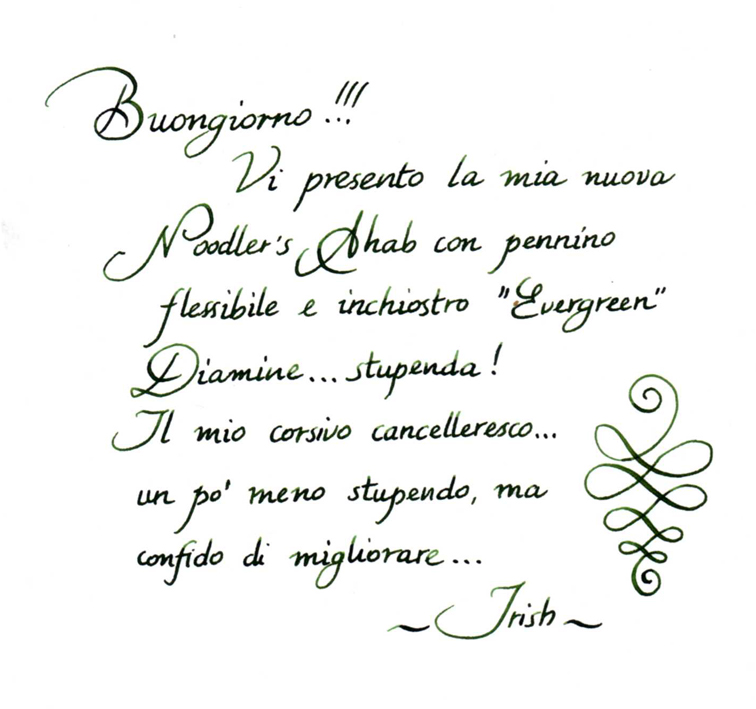 Buongiorno !!!
Vi presento la mia nuova
Noodler's Ahab con pennino
flessibile e inchiostro "Evergreen"
Diamine... stupenda!
Il mio corsivo cancelleresco...
un po' meno stupendo, ma
confido di migliorare...
~ Irish ~